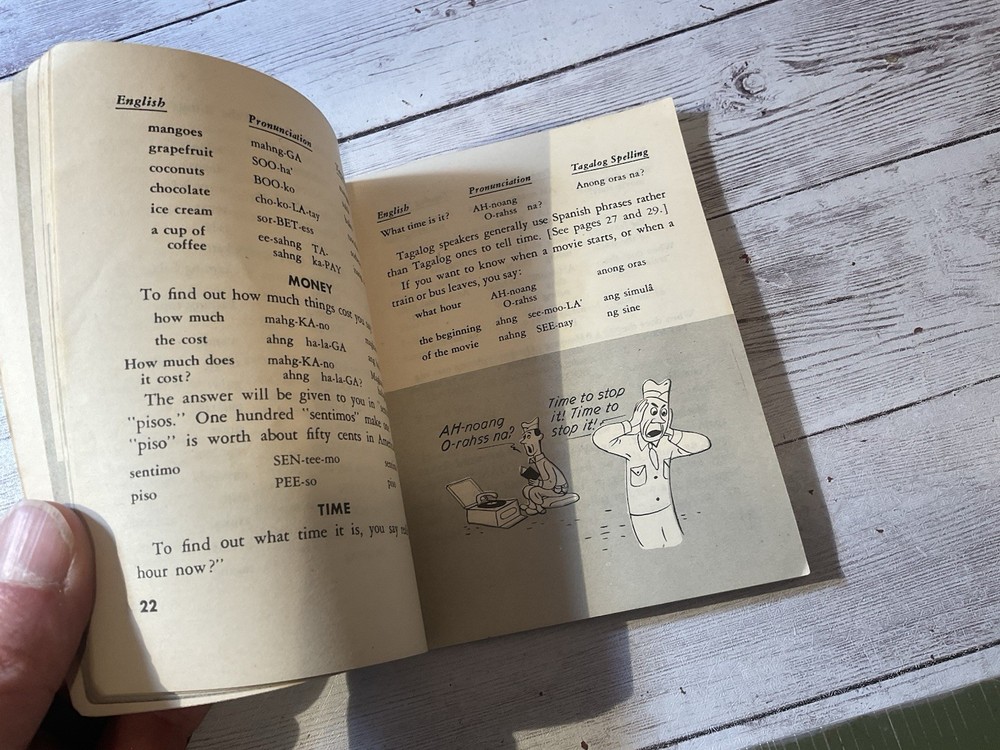 English
Pronunciation
mangoes mahng-GA
grapefruit SOO-ha'
coconuts BOO-ko
chocolate cho-ko-LA-tay
ice cream sor-BET-ess
a cup of ee-sahng TA.
coffee sahng ka-PAY
MONEY
To find out how much things cost you
how much mahg-KA-no
the cost ahng ha-la-GA
How much does mahg-KA-no
it cost? ahng ha-la-GA?
The answer will be given to you in
"pisos." One hundred "sentimos" make
"piso" is worth about fifty cents in
sentimo SEN-tee-mo
piso PEE-so
TIME
To find out what time it is, you say
hour now?"
22
English Pronunciation Tagalog Spelling
What time is it? AH-noang na? Anong oras na?
O-rahss
Tagalog speakers generally use Spanish phrases rather
than Tagalog ones to tell time. [See pages 27 and 29.]
If you want to know when a movie starts, or when a
train or bus leaves, you say:
what hour AH-noang anong oras
O-rahss
the beginning ahng see-moo-LA' ang simulâ
of the movie nahng SEE-nay ng sine
AH-noang
O-rahss na?
Time to stop
it! Time to
stop it!